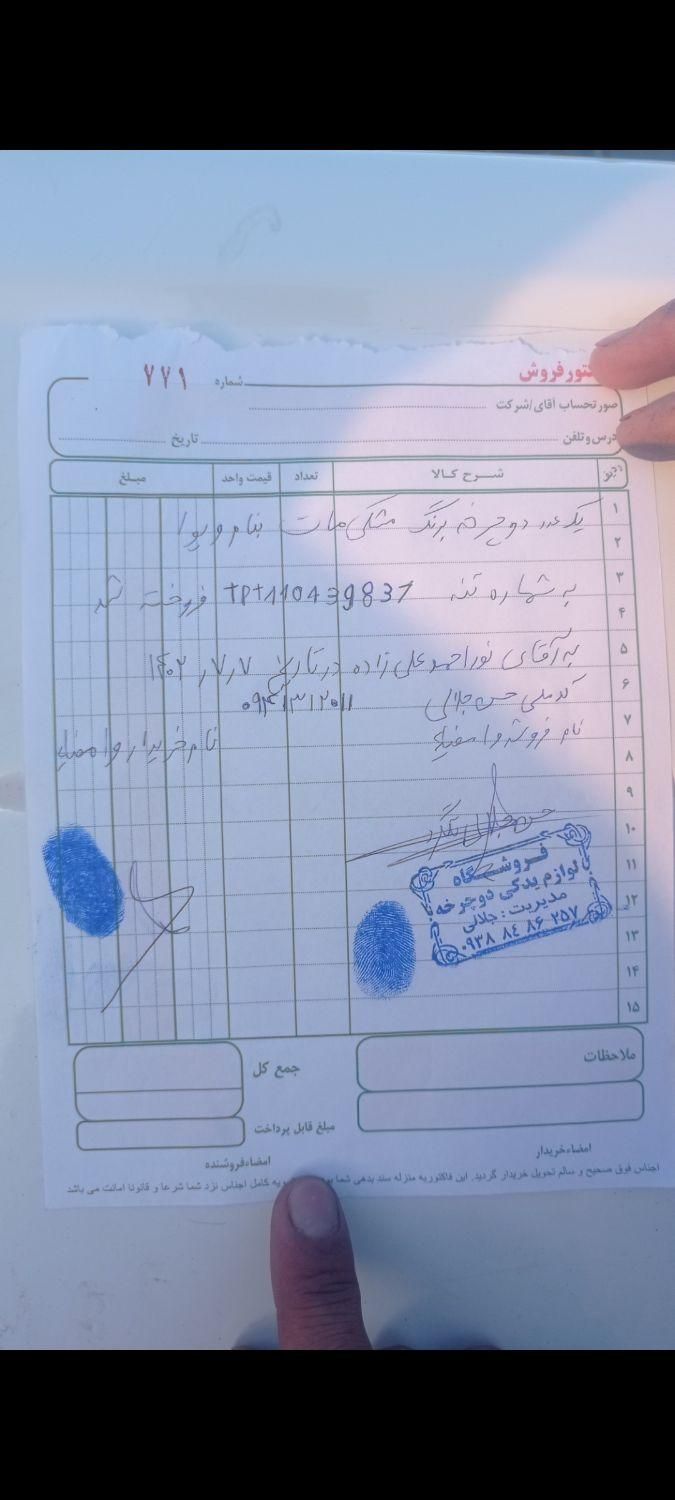 فاکتور فروش
شماره ۷۷۱
صورتحساب آقای/شرکت
آدرس و تلفن تاریخ
ردیف شـــرح کـالا تعداد قیمت واحد مبـلـغ
۱ یک عدد دوچرخه برنگ مشکی مات بنام ویوا
۲
۳ به شماره تنه فروخته شد
۴
۵ به آقای نوراحمد علی زاده در تاریخ ۷٫۷٫ ۱۴۰۲
۶ کد ملی حسن جلالی
۷ نام فروشنده و امضاء نام خریدار و امضاء
۸
۹
۱۰ حسن جلالی
۱۱
۱۲
۱۳
۱۴
۱۵
فروشـــگاه
لوازم یدکی دوچرخه
مدیریت: جلالی
۰۹۳۸ ۸۴ ۸۶ ۲۵۷
ملاحظات جمع کل
مبلغ قابل پرداخت
امضاءخریدار امضاءفروشنده
اجناس فوق صحیح و سالم تحویل خریدار گردید. این فاکتوربه منزله سند بدهی شما کامل اجناس نزد شما شرعا و قانونا امانت می باشد